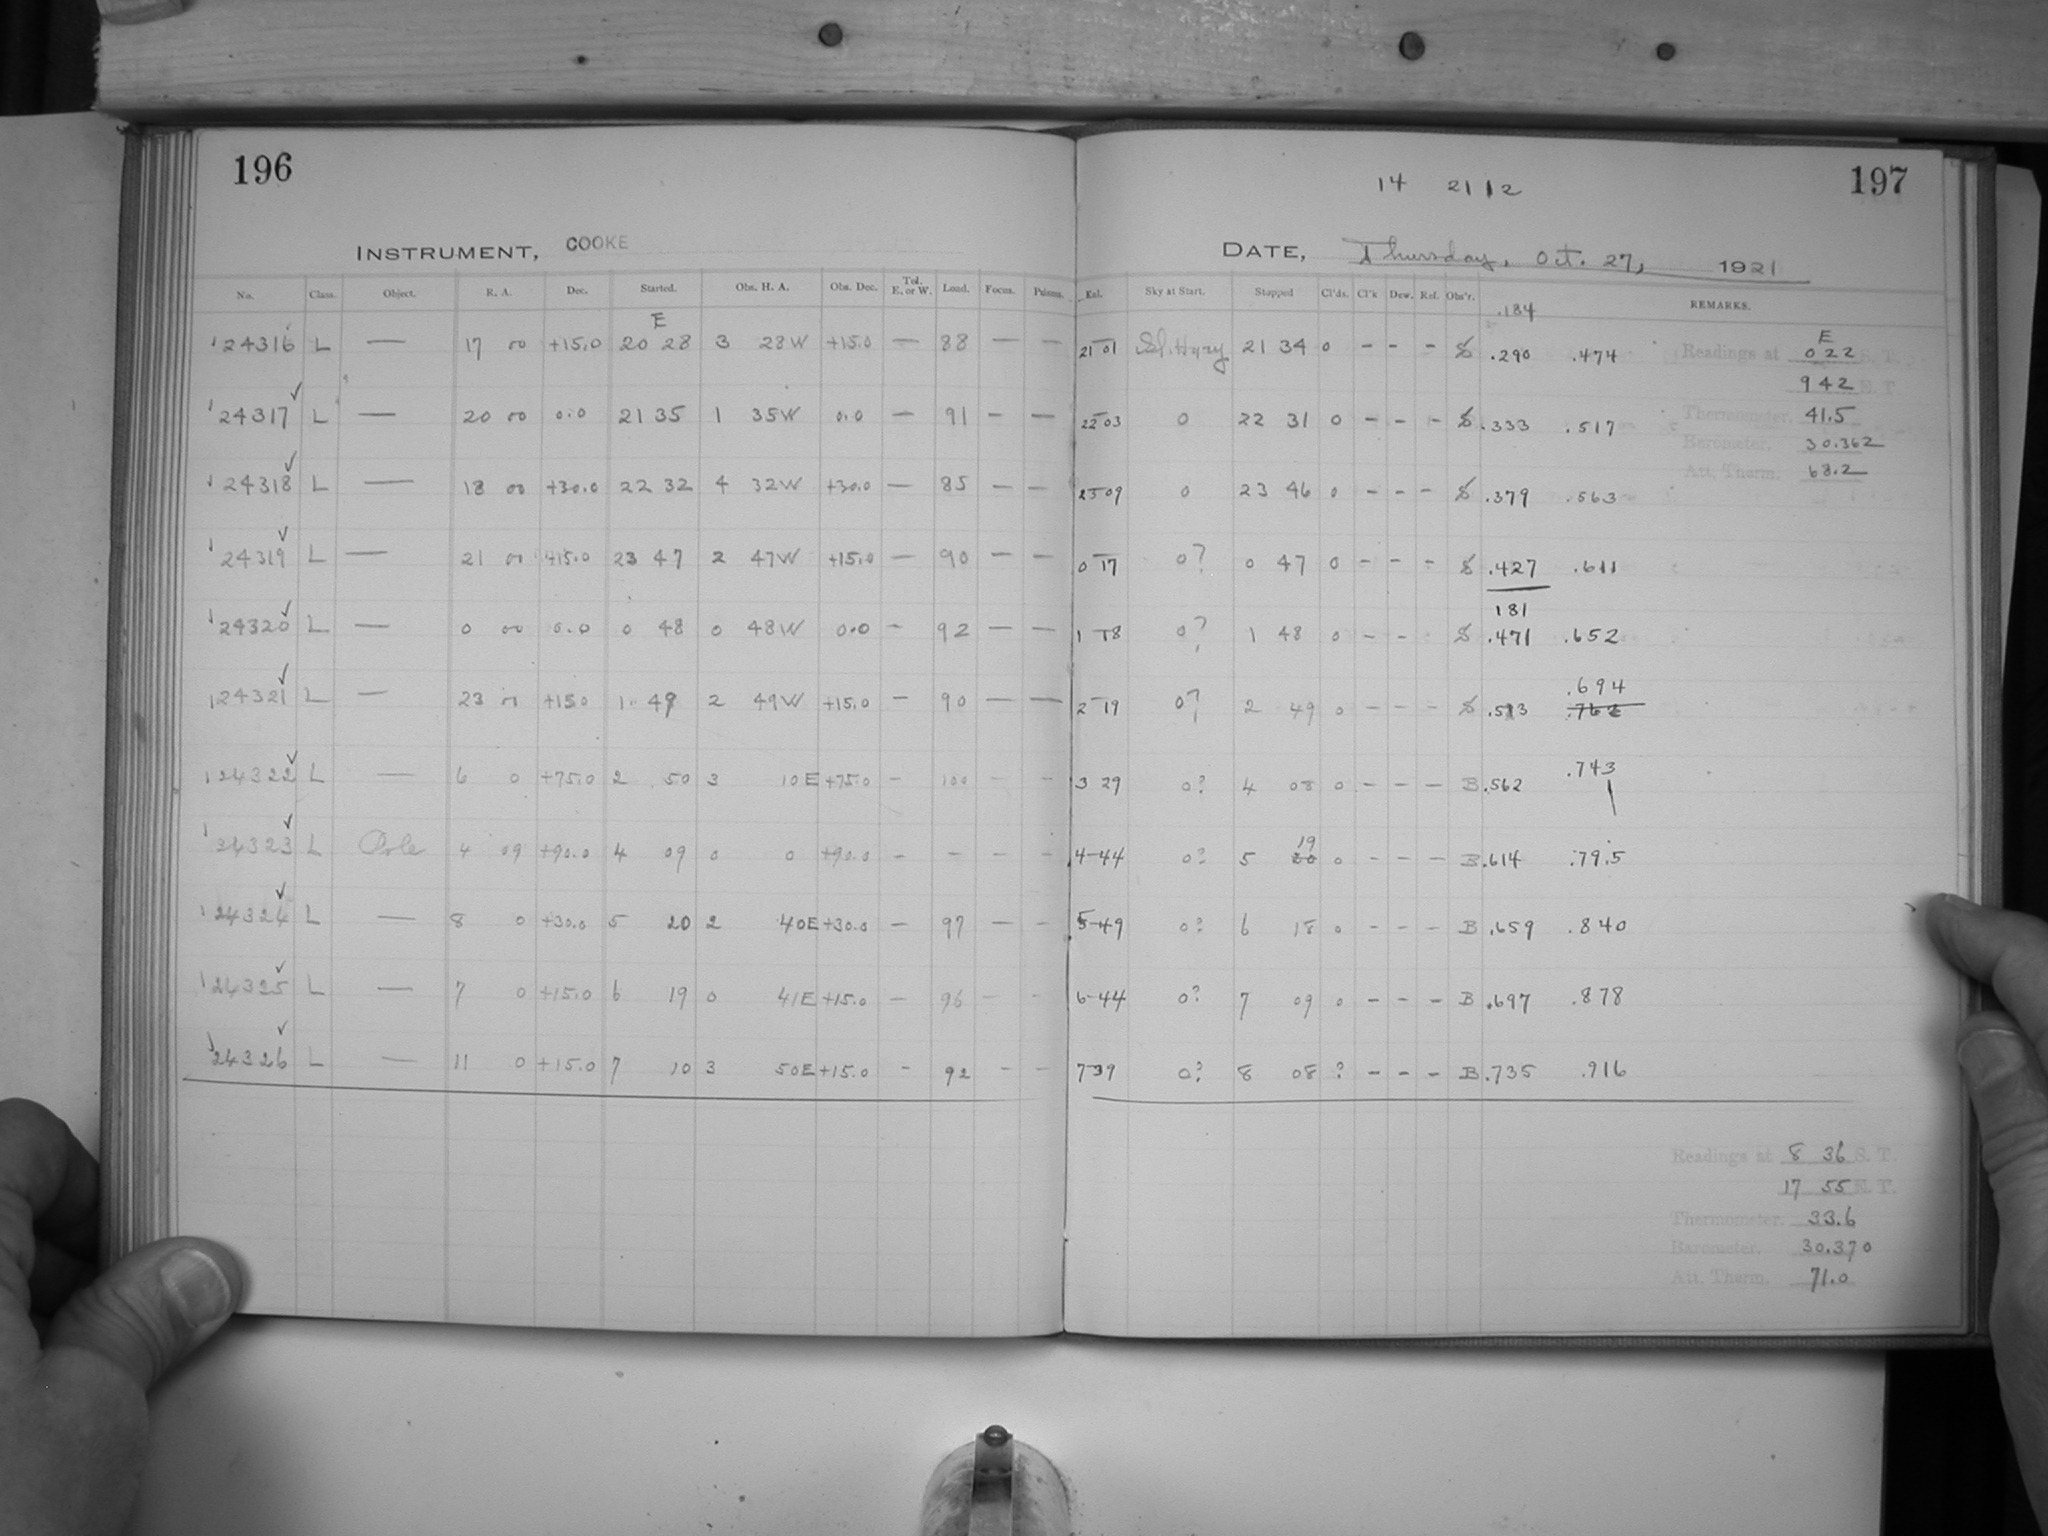 196
INSTRUMENT, COOKE
No. Class. Object. R. A. Dec. Started. Obs. H. A. Obs. Dec. Tel. E. or W. Load. Focus. Prisms.
E
24316 L — 17 00 +15.0 20 28 3 28W +15.0 — 88 — —
24317 L — 20 00 0.0 21 35 1 35W 0.0 — 91 — —
24318 L — 18 00 +30.0 22 32 4 32W +30.0 — 85 — —
24319 L — 21 00 +15.0 23 47 2 47W +15.0 — 90 — —
24320 L — 0 00 0.0 0 48 0 48W 0.0 — 92 — —
24321 L — 23 00 +15.0 1 49 2 49W +15.0 — 90 — —
24322 L — 6 0 +75.0 2 50 3 10E +75.0 — 100 — —
24323 L Pole 4 09 +90.0 4 09 0 0 +90.0 — — — —
24324 L — 8 0 +30.0 5 20 2 40E +30.0 — 97 — —
24325 L — 7 0 +15.0 6 19 0 41E +15.0 — 96 — —
24326 L — 11 0 +15.0 7 10 3 50E +15.0 — 92 — —
197
14 2112
DATE, Thursday, Oct. 27, 1921
Exl. Sky at Start. Stopped Cl'ds. Cl'k Dew. Ref. Obs'r. REMARKS.
.184
21 01 Sl. Hazy 21 34 0 – – – S .290 .474
22 03 0 22 31 0 – – – S .333 .517
23 09 0 23 46 0 – – – S .379 .563
0 17 0? 0 47 0 – – – S .427 .611
181
1 18 0? 1 48 0 – – – S .471 .652
.694
2 19 0? 2 49 0 – – – S .513
3 29 0? 4 08 0 – – – B .562 .743
19
4-44 0? 5 20 0 – – – B .614 .795
5-49 0? 6 18 0 – – – B .659 .840
6-44 0? 7 09 0 – – – B .697 .878
7 39 0? 8 08 ? – – – B .735 .916
E
Readings at 0 22 S. T.
9 42 E. T.
Thermometer. 41.5
Barometer. 30.362
Att. Therm. 68.2
Readings at 8 36 S. T.
17 55 E. T.
Thermometer. 33.6
Barometer. 30.370
Att. Therm. 71.0